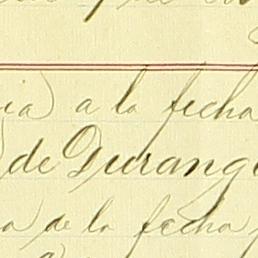 a la fecha
de Durango
de la fecha